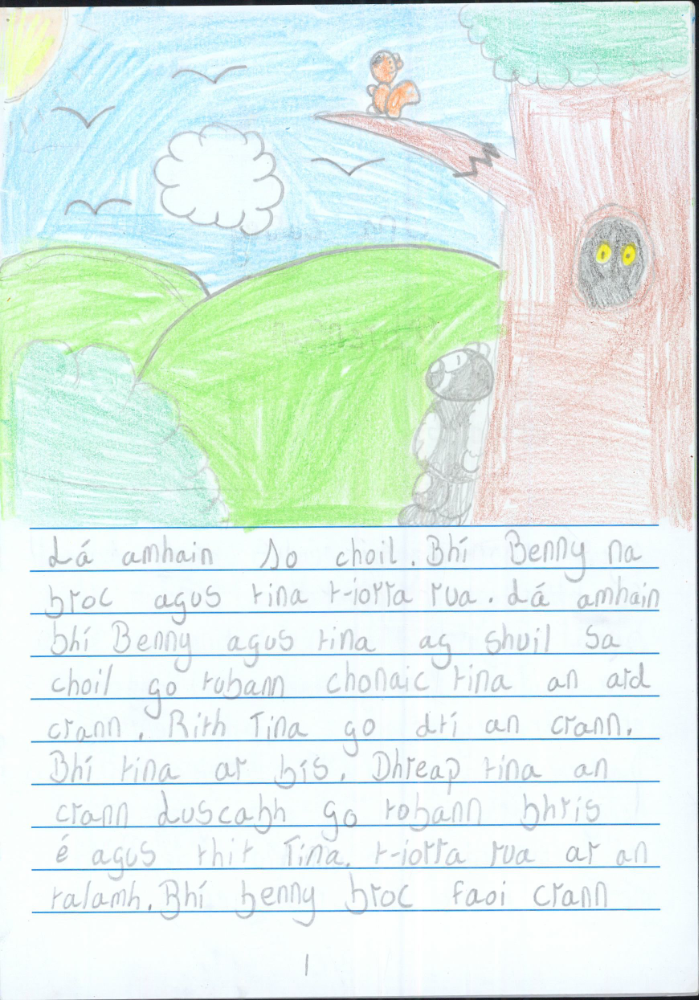 Lá amhain so choil. Bhí Benny na
broc agus tina t-iorra rua. Lá amhain
bhí Benny agus tina ag shuil sa
choil go tobann chonaic tina an ard
crann. Rith Tina go dtí an crann.
Bhí tina ar bís. Dhreap tina an
crann Luscabh go tobann bhris
é agus thit Tina. t-iorra rua ar an
talamh. Bhí benny broc faoi crann
1